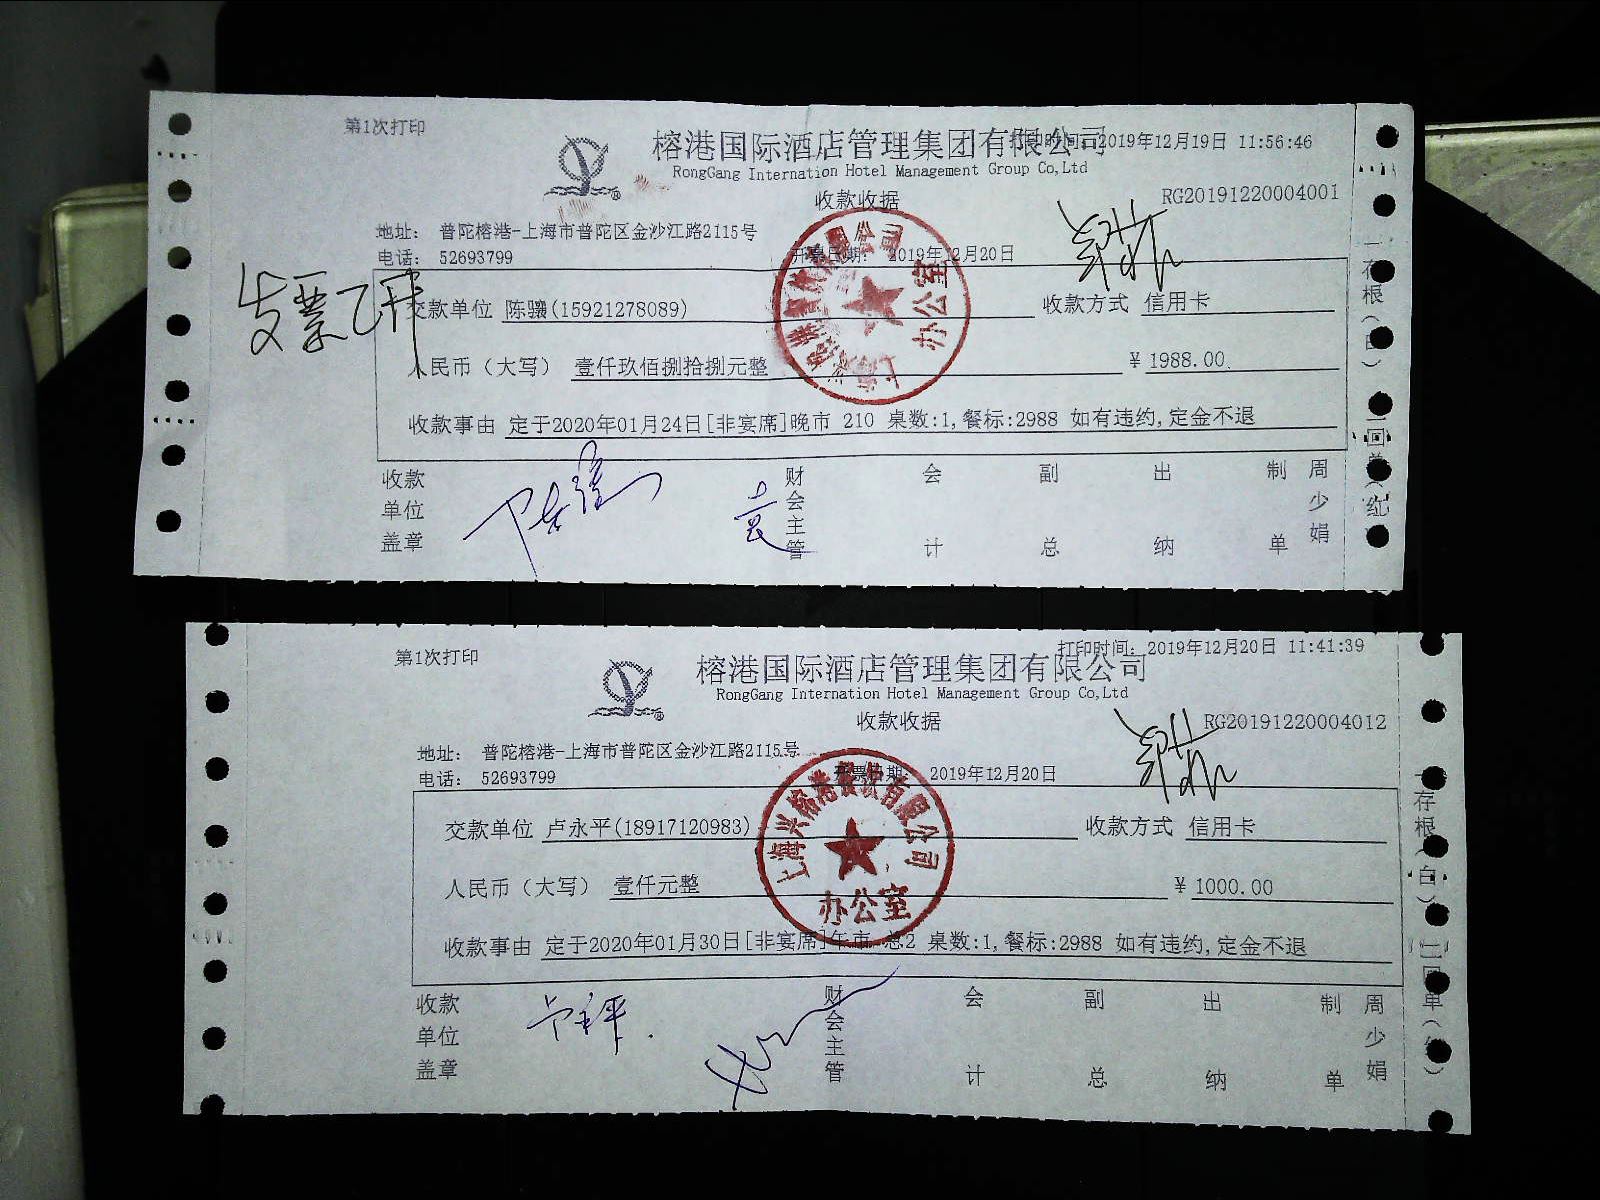 第1次打印
榕港国际酒店管理集团有限公司
打印时间：2019年12月19日 11:56:46
RongGang Internation Hotel Management Group Co,Ltd
收款收据
RG20191220004001
地址： 普陀榕港-上海市普陀区金沙江路2115号
电话： 52693799
开票日期： 2019年12月20日
发票已开
交款单位 陈骧(15921278089) 收款方式 信用卡
人民币（大写） 壹仟玖佰捌拾捌元整 ￥1988.00
收款事由 定于2020年01月24日[非宴席]晚市 210 桌数:1,餐标:2988 如有违约,定金不退
办公室
收款单位盖章 财会主管 会计 副总 出纳 制单 周少娟
第1次打印
打印时间：2019年12月20日 11:41:39
榕港国际酒店管理集团有限公司
RongGang Internation Hotel Management Group Co,Ltd
收款收据
RG20191220004012
地址： 普陀榕港-上海市普陀区金沙江路2115号
电话： 52693799
开票日期： 2019年12月20日
交款单位 卢永平(18917120983) 收款方式 信用卡
人民币（大写） 壹仟元整 ￥1000.00
收款事由 定于2020年01月30日[非宴席]午市 总2 桌数:1,餐标:2988 如有违约,定金不退
上海兴榕港餐饮有限公司
办公室
收款单位盖章 财会主管 会计 副总 出纳 制单 周少娟